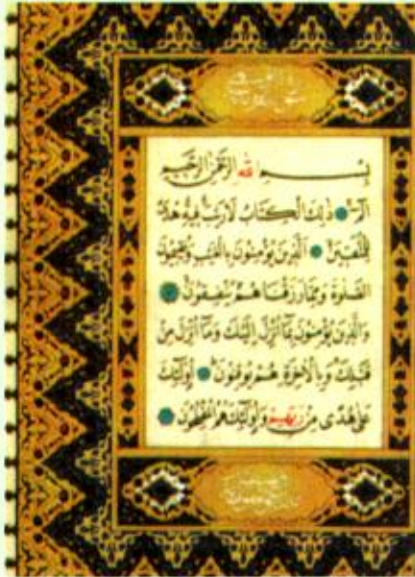 بِسْمِ اللهِ الرَّحْمٰنِ الرَّحِيمِ
الٓمٓ ذٰلِكَ الْكِتَابُ لَا رَيْبَ فِيهِ هُدًى
لِلْمُتَّقِينَ الَّذِينَ يُؤْمِنُونَ بِالْغَيْبِ وَيُقِيمُونَ
الصَّلٰوةَ وَمِمَّا رَزَقْنَاهُمْ يُنْفِقُونَ
وَالَّذِينَ يُؤْمِنُونَ بِمَا أُنْزِلَ إِلَيْكَ وَمَا أُنْزِلَ مِنْ
قَبْلِكَ وَبِالْاٰخِرَةِ هُمْ يُوقِنُونَ أُولٰئِكَ
عَلٰى هُدًى مِنْ رَبِّهِمْ وَأُولٰئِكَ هُمُ الْمُفْلِحُونَ